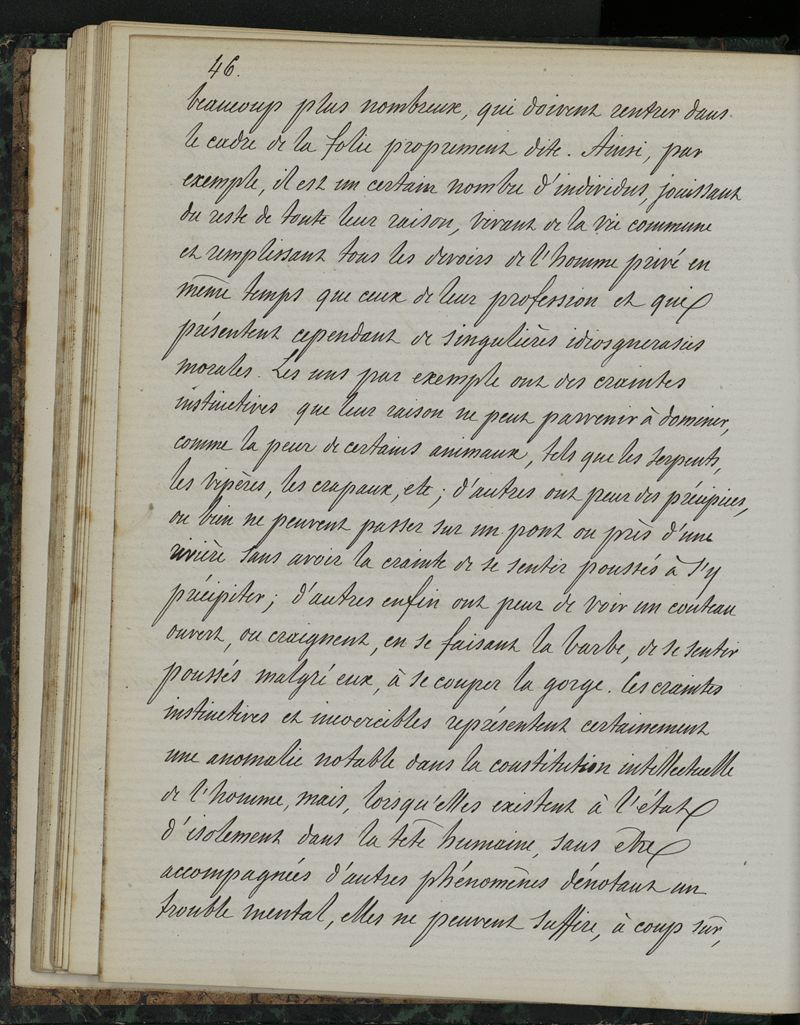 46.
beaucoup plus nombreux, qui doivent rentrer dans
le cadre de la folie proprement dite. Ainsi, par
exemple, il est un certain nombre d'individus, jouissant
du reste de toute leur raison, vivant de la vie commune
et remplissant tous les devoirs de l'homme privé en
même temps que ceux de leur profession et qui
présentent cependant de singulières idiosgnerasies
morales. Les uns par exemple ont des craintes
instinctives que leur raison ne peut parvenir à dominer,
comme la peur de certains animaux, tels que les serpents,
les vipères, les crapaux, etc; d'autres ont peur des précipices,
ou bien ne peuvent passer sur un pont ou près d'une
rivière sans avoir la crainte de se sentir poussés à s'y
précipiter; d'autres enfin ont peur de voir un couteau
ouvert, ou craignent, en se faisant la barbe, de se sentir
poussés malgré eux, à se couper la gorge. Ces craintes
instinctives et incoercibles représentent certainement
une anomalie notable dans la constitution intellectuelle
de l'homme, mais, lorsqu'elles existent à l'état
d'isolement dans la tête humaine, sans être
accompagnées d'autres phénomènes dénotant un
trouble mental, elles ne peuvent suffire, à coup sûr,